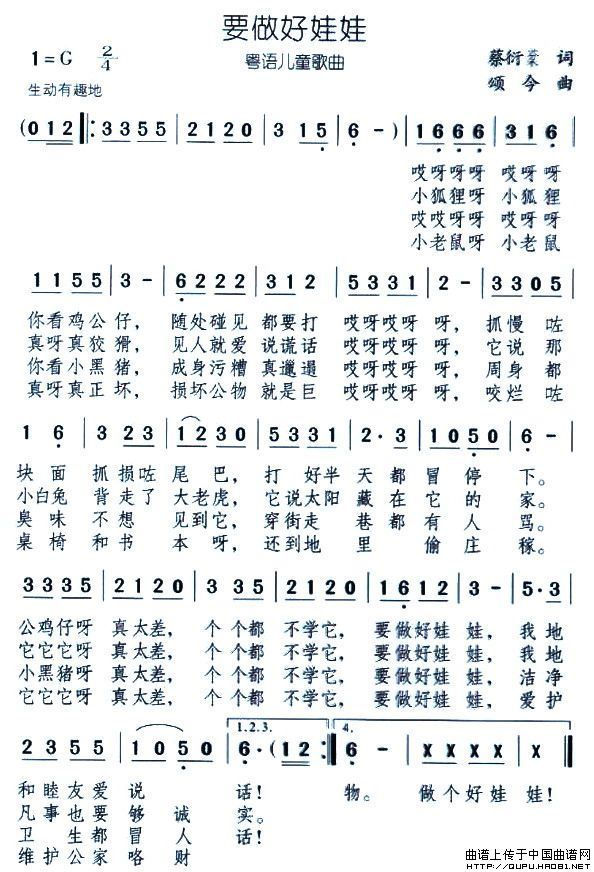 要做好娃娃
1=G 2/4
粤语儿童歌曲
蔡衍 词
生动有趣地
颂今 曲
(0 1 2 ‖: 3 3 5 5 | 2 1 2 0 | 3 1 5 | 6 - ) | 1 6 6 6 | 3 1 6 |
哎呀呀呀 哎呀呀
小狐狸呀 小狐狸
哎哎呀呀 哎呀呀
小老鼠呀 小老鼠
1 1 5 5 | 3 - | 6 2 2 2 | 3 1 2 | 5 3 3 1 | 2 - | 3 3 0 5 |
你看鸡公仔, 随处碰见 都要打 哎呀哎呀 呀, 抓慢 咗
真呀真狡猾, 见人就爱 说谎话 哎呀哎呀 呀, 它说 那
你看小黑猪, 成身污糟 真邋遢 哎呀哎呀 呀, 周身 都
真呀真正坏, 损坏公物 就是巨 哎呀哎呀 呀, 咬烂 咗
1 6 | 3 2 3 | 1 2 3 0 | 5 3 3 1 | 2· 3 | 1 0 5 0 | 6 - |
块面 抓损咗 尾巴, 打 好半 天都 冒停 下。
小白兔 背走了 大老虎, 它说太阳 藏在 它的 家。
臭味 不想 见到它, 穿街走 巷都 有人 骂。
桌椅 和书 本呀, 还到地 里 偷庄 稼。
3 3 3 5 | 2 1 2 0 | 3 3 5 | 2 1 2 0 | 1 6 1 2 | 3 - | 5· 3 |
公鸡仔呀 真太差, 个个都 不学它, 要做好娃 娃, 我地
它它它呀 真太差, 个个都 不学它, 要做好娃 娃,
小黑猪呀 真太差, 个个都 不学它, 要做好娃 娃, 洁净
它它它呀 真太差, 个个都 不学它, 要做好娃 娃, 爱护
2 3 5 5 | 1 0 5 0 | 1.2.3. 6· (1 2 :‖ 4. 6 - | X X X X | X X X ‖
和睦友爱 说 话! 物。 做个好娃 娃!
凡事也要 够诚 实。
卫生都冒人 话!
维护公家 咯财
曲谱上传于中国曲谱网
http://QUPU.HAO81.NET